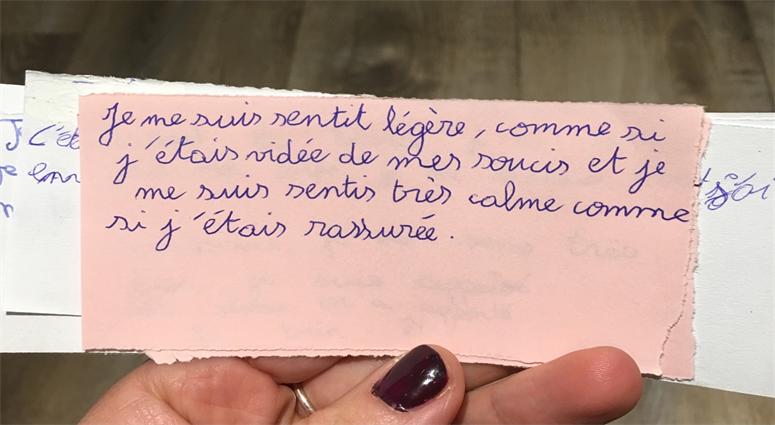 Je me suis sentit légère, comme si
j'étais vidée de mes soucis et je
me suis sentis très calme comme
si j'étais rassurée.